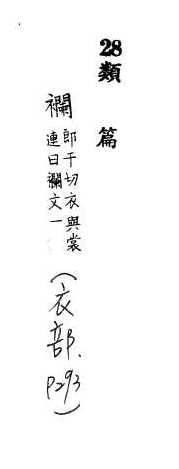 28類篇
襴 郎干切衣與裳
連曰襴文一
(衣部. P293)